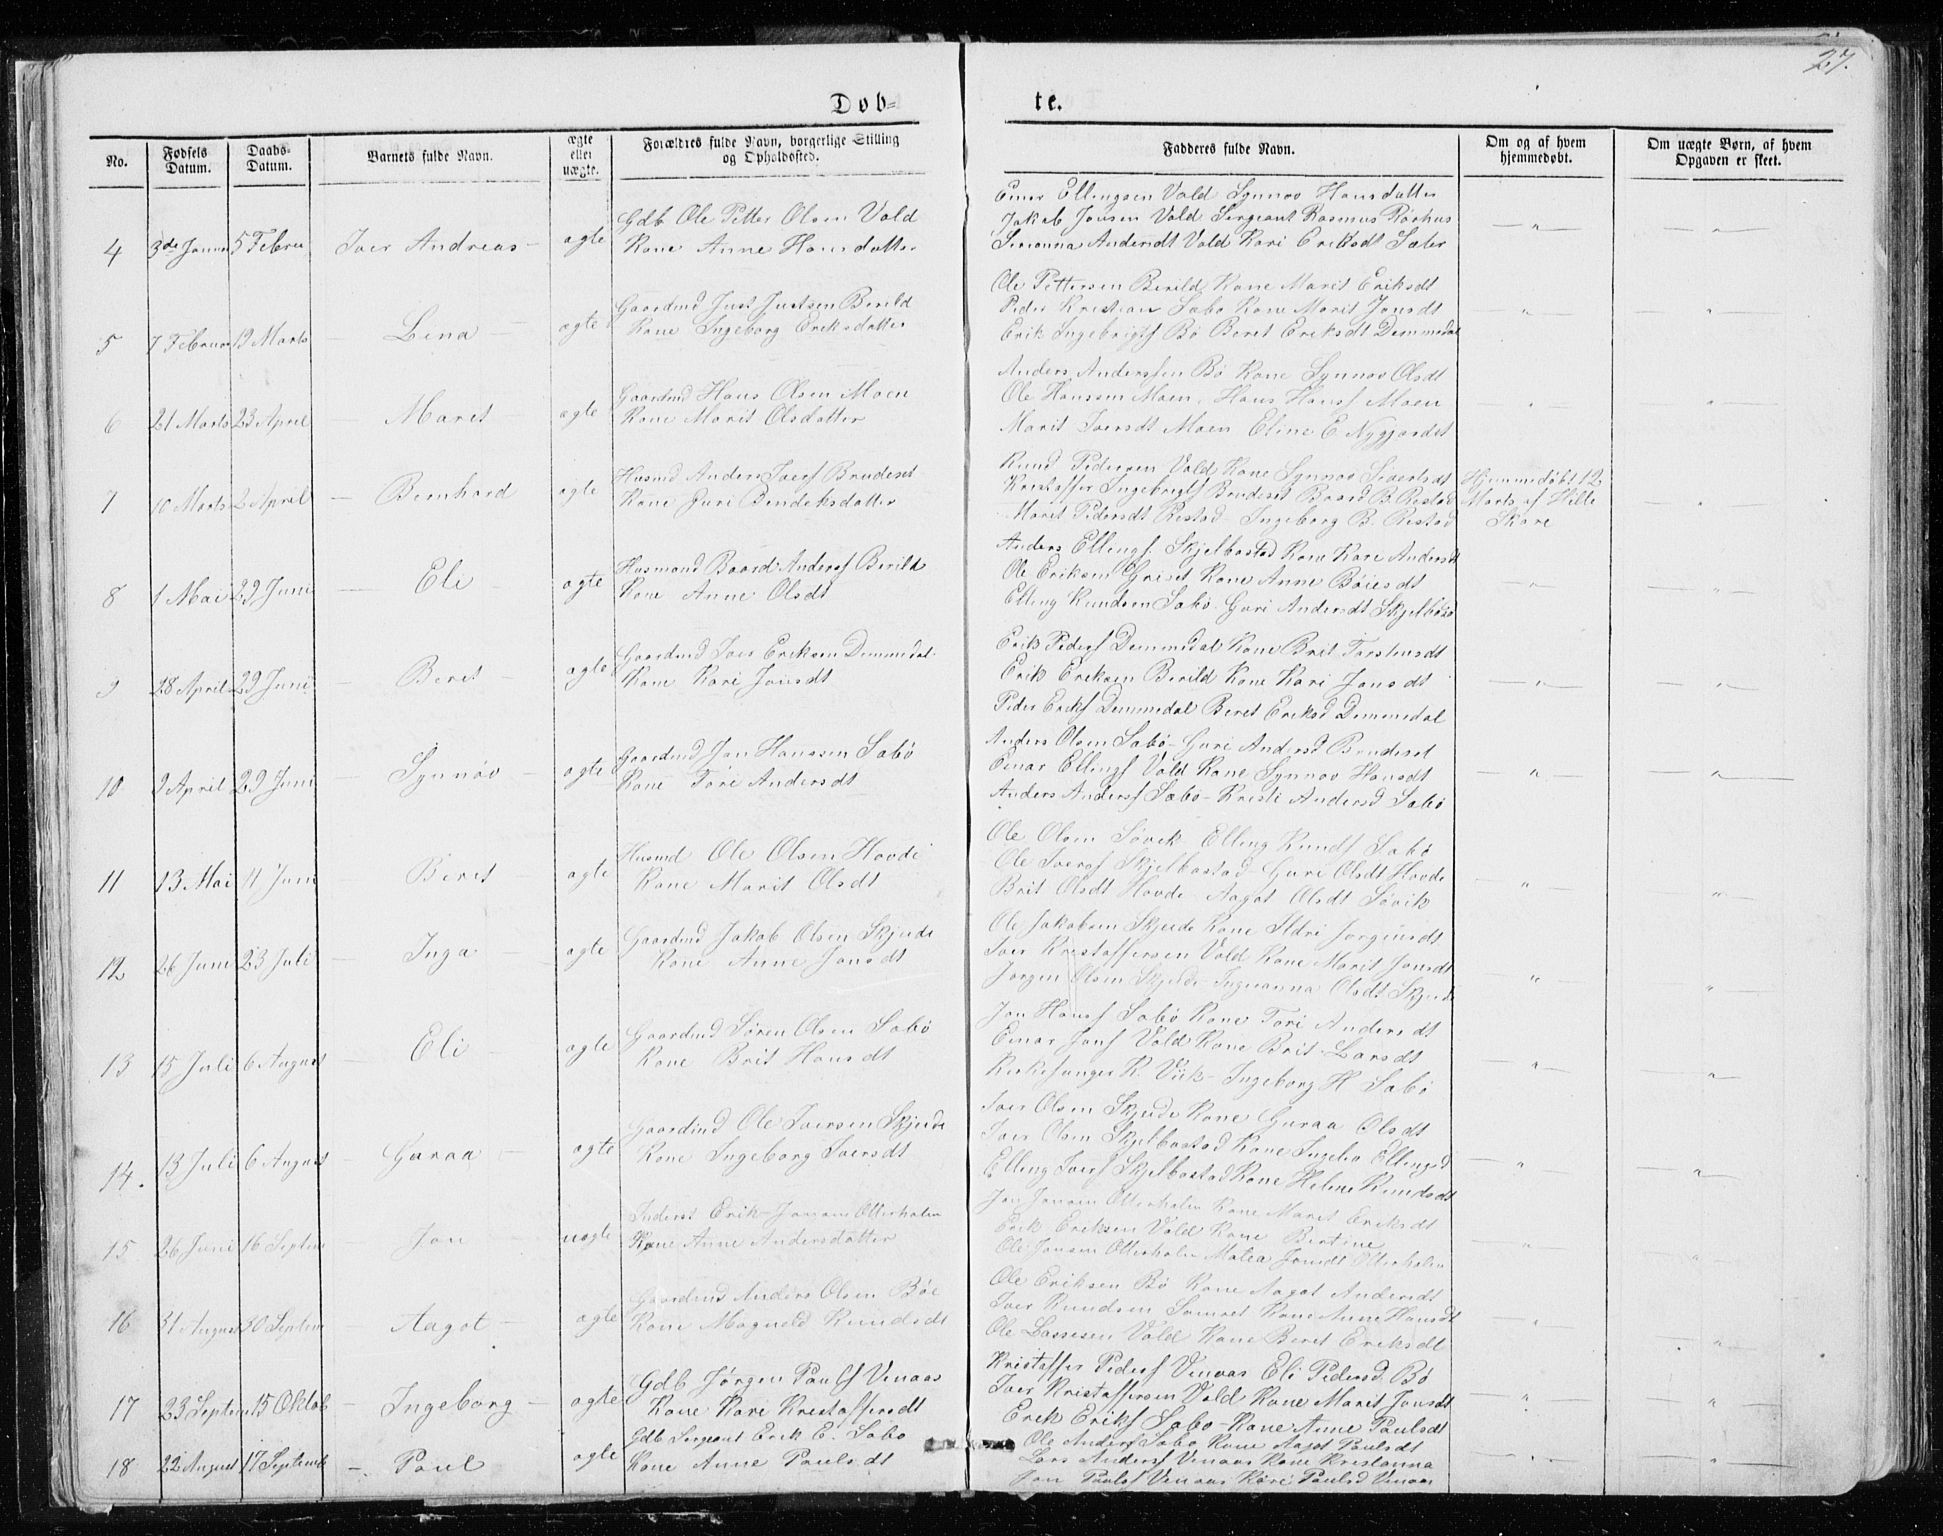 27.
Døb-
te.
No.
Fødsels Datum.
Daabs- Datum.
Barnets fulde Navn.
ægte eller uægte.
Forældres fulde Navn, borgerlige Stilling og Opholdssted.
Fadderes fulde Navn.
Om og af hvem hjemmedøbt.
Om uægte Børn, af hvem Opgaven er skeet.
Einar Ellingsen Vold Synnøv Hansdatter
Gdb Ole Petter Olsen Vold
Jakob Jonsen Vold Sergeant Rasmus Rørhus
4 3de Januar 5 Februa Iver Andreas ægte Kone Anne Hansdatter
Andersdt Vold Kari Eriksdt Sæter
Ole Pettersen Berild Kone Marit Eriksdt
Gaardmd Just Justsen Berild
Peder Kristian Sabo Kone Marit Jonsdt
5 7 Februar 19 Marts Lina ægte Kone Ingeborg Eriksdatter
Erik Ingebrigtsf Bø Beret Eriksdt Demmedal
Anders Anderssen Bø Kone Synnøv Olsdt
Gaardmd Hans Olsen Moen
Ole Hanssen Moen, Hans Hansf Moen
6 21 Marts 23 April Maret ægte Kone Marit Olsdatter
Marit Iversdt Moen Eline E Nygjordet
Knud Pedersen Vold Kone Synnøv Sivertsdt
Husmd Anders Iversf Brudeset
Kristoffer Ingebrigtsf Brudeset Baard B. Restad
Hjemmedøbt 12
7 10 Marts 2 April Bernhard ægte Kone Guri Bendiksdatter
Marit Pedersdt Restad Ingeborg B. Restad
Marts af Hille
Skare
Anders Ellingsf. Skjelbostad Kone Kari Andersdt
Husmand Baard Andersf Berild
Ole Eriksen Griset Kone Anne Bøiesdt
8 1 Mai 29 Juni Eli ægte Kone Anne Olsdt
Elling Knudsen Sabø Guri Andersdt Skjelbosd
Erik Pedersf Demmedal Kone Brit Torstensdt
Gaardmd Iver Eriksen Demmedal
Erik Eriksen Berild Kone Kari Jonsdt
9 28 April 29 Juni Beret ægte Kone Kari Joiesdt
Peder Eriksf Demmedal Beret Eriksd Demmedal
Anders Olsen Sabø Guri Andersd Brudeset
Gaardmd Jon Hanssen Sabø
Einar Ellingsf Vold Kone Synnøv Hansdt
10 9 April 29 Juni Synnøv ægte Kone Tori Andersdt
Anders Andersf Sæbø Kristi Andersd Sabø
Ole Olsen Søvik Elling Knudsf Sabø
Husmd Ole Olsen Hovde
Ole Iversf Skjelbostad Guri Olsdt Hovde
11 13 Mai 11 Juni Beret ægte Kone Marit Olsdt
Brit Olsdt Hovde Aagot Olsdt Søvik
Ole Jakobsen Skjeide Kone Ildri Jørgensdt
Gaardmd Jakob Olsen Skjeide
Iver Kristoffersen Vold Kone Marit Jonsdt
12 26 Juni 23 Juli Inga ægte Kone Anne Jonsdt
Jørgen Olsen Skjeide Ingeranna Olsdt Skjeide
Jon Hansf Sabø Kone Tori Andersdt
Gaardmd Søren Olsen Sabø
Einar Jonsf Vold Kone Brit Larsdt
13 15 Juli 6 August Eli ægte Kone Brit Hansdt
Kirkesanger K. Viik Ingeborg H Sabø
Iver Olsen Skjeide Kone Guraa Olsdt
Gaardmd Ole Iversen Skjeide
Iver Olsen Skjelbostad Kone Ingebo Ellingsd
14. 13 Juli 6 August Guraa ægte Kone Ingeborg Iversdt
Elling Iversf Skjelbostad Kone Helene Knudsdt
Jon Jonsen Otterholm Kone Maret Eriksdt
Inderst Erik Jonsen Otterholm
Erik Eriksen Vold Kone Bertine
15 26 Juni 16 Septem Jon uægte Kone Anne Andersdatter
Ole Jonsen Otterholm Malea Jonsdt Otterholm
Ole Eriksen Bø Kone Aagot Andersdt
Gaardmd Anders Olsen Bøe
Iver Knudsen Somset Kone Anne Hansdt
16 31 August 30 Septem Aagot ægte Kone Magnild Knudsdt
Ole Lassesen Vold Kone Beret Eriksdt
Kristoffer Pedersf Venaas Eli Pedersd Bø
Gdb Jørgen Paulsf Venaas
Iver Kristoffersen Vold Kone Marit Jonsdt
17 23 Septem 15 Oktob Ingeborg ægte Kone Kari Kristoffersdt
Erik Eriksf Sabo Kone Anne Paulsdt
Gdb Sergeant Erik E. Sabo
Ole Andersf Sabo Kone Aagot Paulsdt
18 22 August 17 Septemb Paul ægte Kone Anne Paulsdt
Lars Andersf Venaas Kone Kristianna
Jon Paulsf Venaas Kari Paulsd Venaas